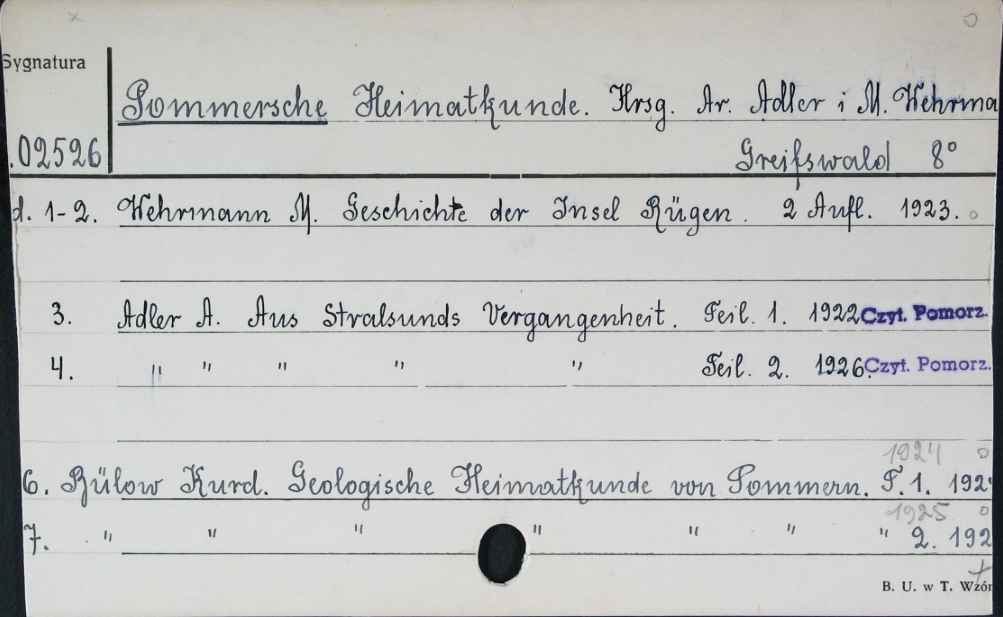 Sygnatura
Pommersche Heimatkunde. Hrsg. Ar. Adler i M. Wehrma
.02526
Greifswald 8°
d. 1-2. Wehrmann M. Geschichte der Insel Rügen. 2 Aufl. 1923.
3. Adler A. Aus Stralsunds Vergangenheit. Teil. 1. 1922 Czyt. Pomorz.
4. " " " " " Teil. 2. 1926. Czyt. Pomorz.
1924
6. Bülow Kurd. Geologische Heimatkunde von Pommern. T. 1. 192
1925
7. " " " " " " " 2. 192
B. U. w T. Wzór